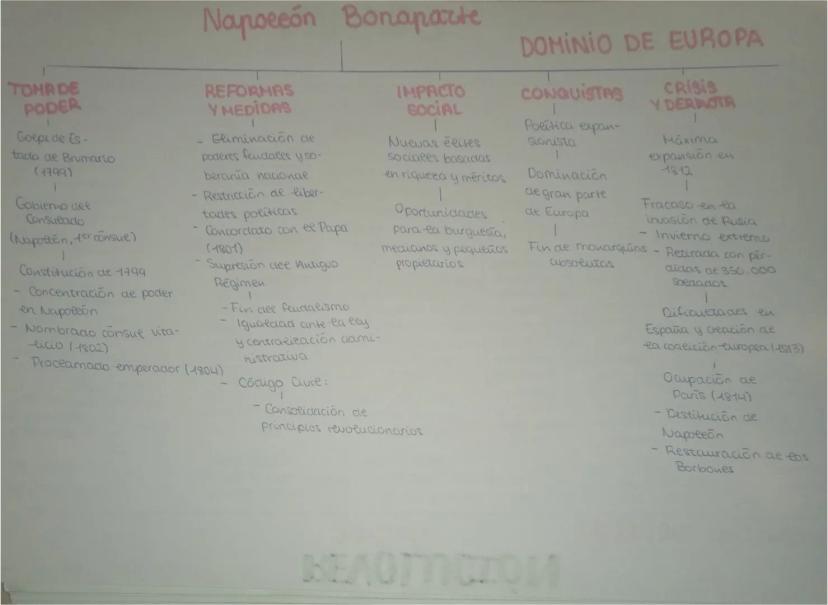 Napoleón Bonaparte
DOMINIO DE EUROPA
TOMA DE
PODER
Golpe de Es-
tado de Brumario
(1799)
Gobierno del
Consulado
(Napoleón, 1er cónsul)
Constitución de 1799
- Concentración de poder
en Napoleón
- Nombrado cónsul vita-
licio (1802)
- Proclamado emperador (1804)
REFORMAS
Y MEDIDAS
- Eliminación de
poderes feudales y so-
beranía nacional
- Restricción de liber-
tades políticas
- Concordato con el Papa
(1801)
- Supresión del Antiguo
Régimen
- Fin del feudalismo
- Igualdad ante la ley
y centralización admi-
nistrativa
- Código Civil:
- Consolidación de
principios revolucionarios
IMPACTO
SOCIAL
Nuevas élites
sociales basadas
en riqueza y méritos
Oportunidades
para la burguesía,
medianos y pequeños
propietarios
CONQUISTAS
Política expan-
sionista
Dominación
de gran parte
de Europa
Fin de monarquías
absolutas
CRISIS
Y DERROTA
Máxima
expansión en
1812
Fracaso en la
invasión de Rusia
- Invierno extremo
- Retirada con pér-
didas de 350.000
soldados
Dificultades en
España y creación de
la coalición europea (1813)
Ocupación de
París (1814)
- Destitución de
Napoleón
- Restauración de los
Borbones
REVOLUCIÓN